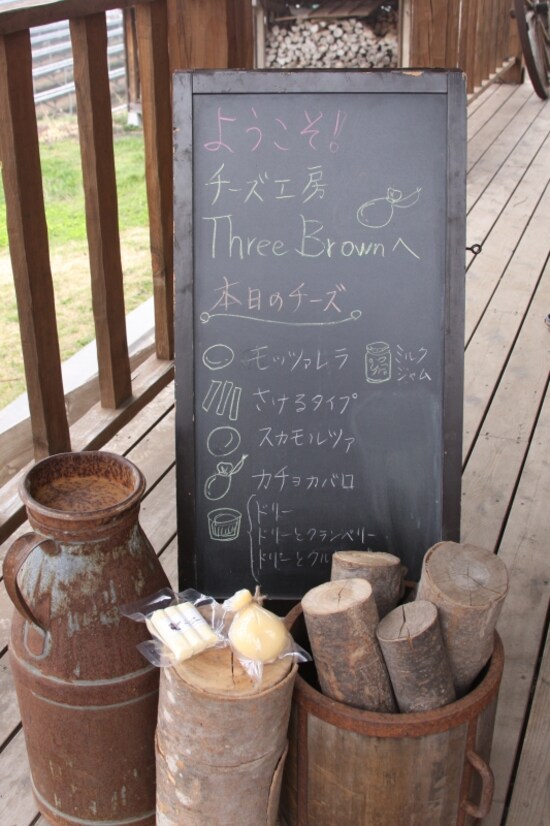 ようこそ!
チーズ工房
Three Brownへ
本日のチーズ
モッツァレラ
ミルク
ジャム
さけるタイプ
スカモルツァ
カチョカバロ
ドリー
ドリーとクランベリー
ドリーとクル